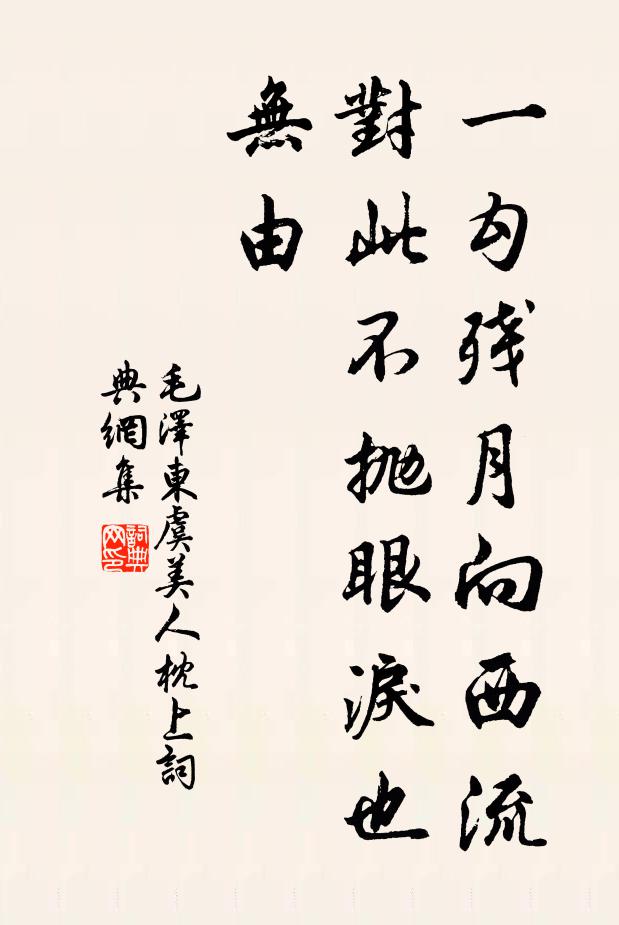 一勾残月向西流
對此不抛眼淚也
無由
毛澤東虞美人枕上詞
典網集
詞典
网印